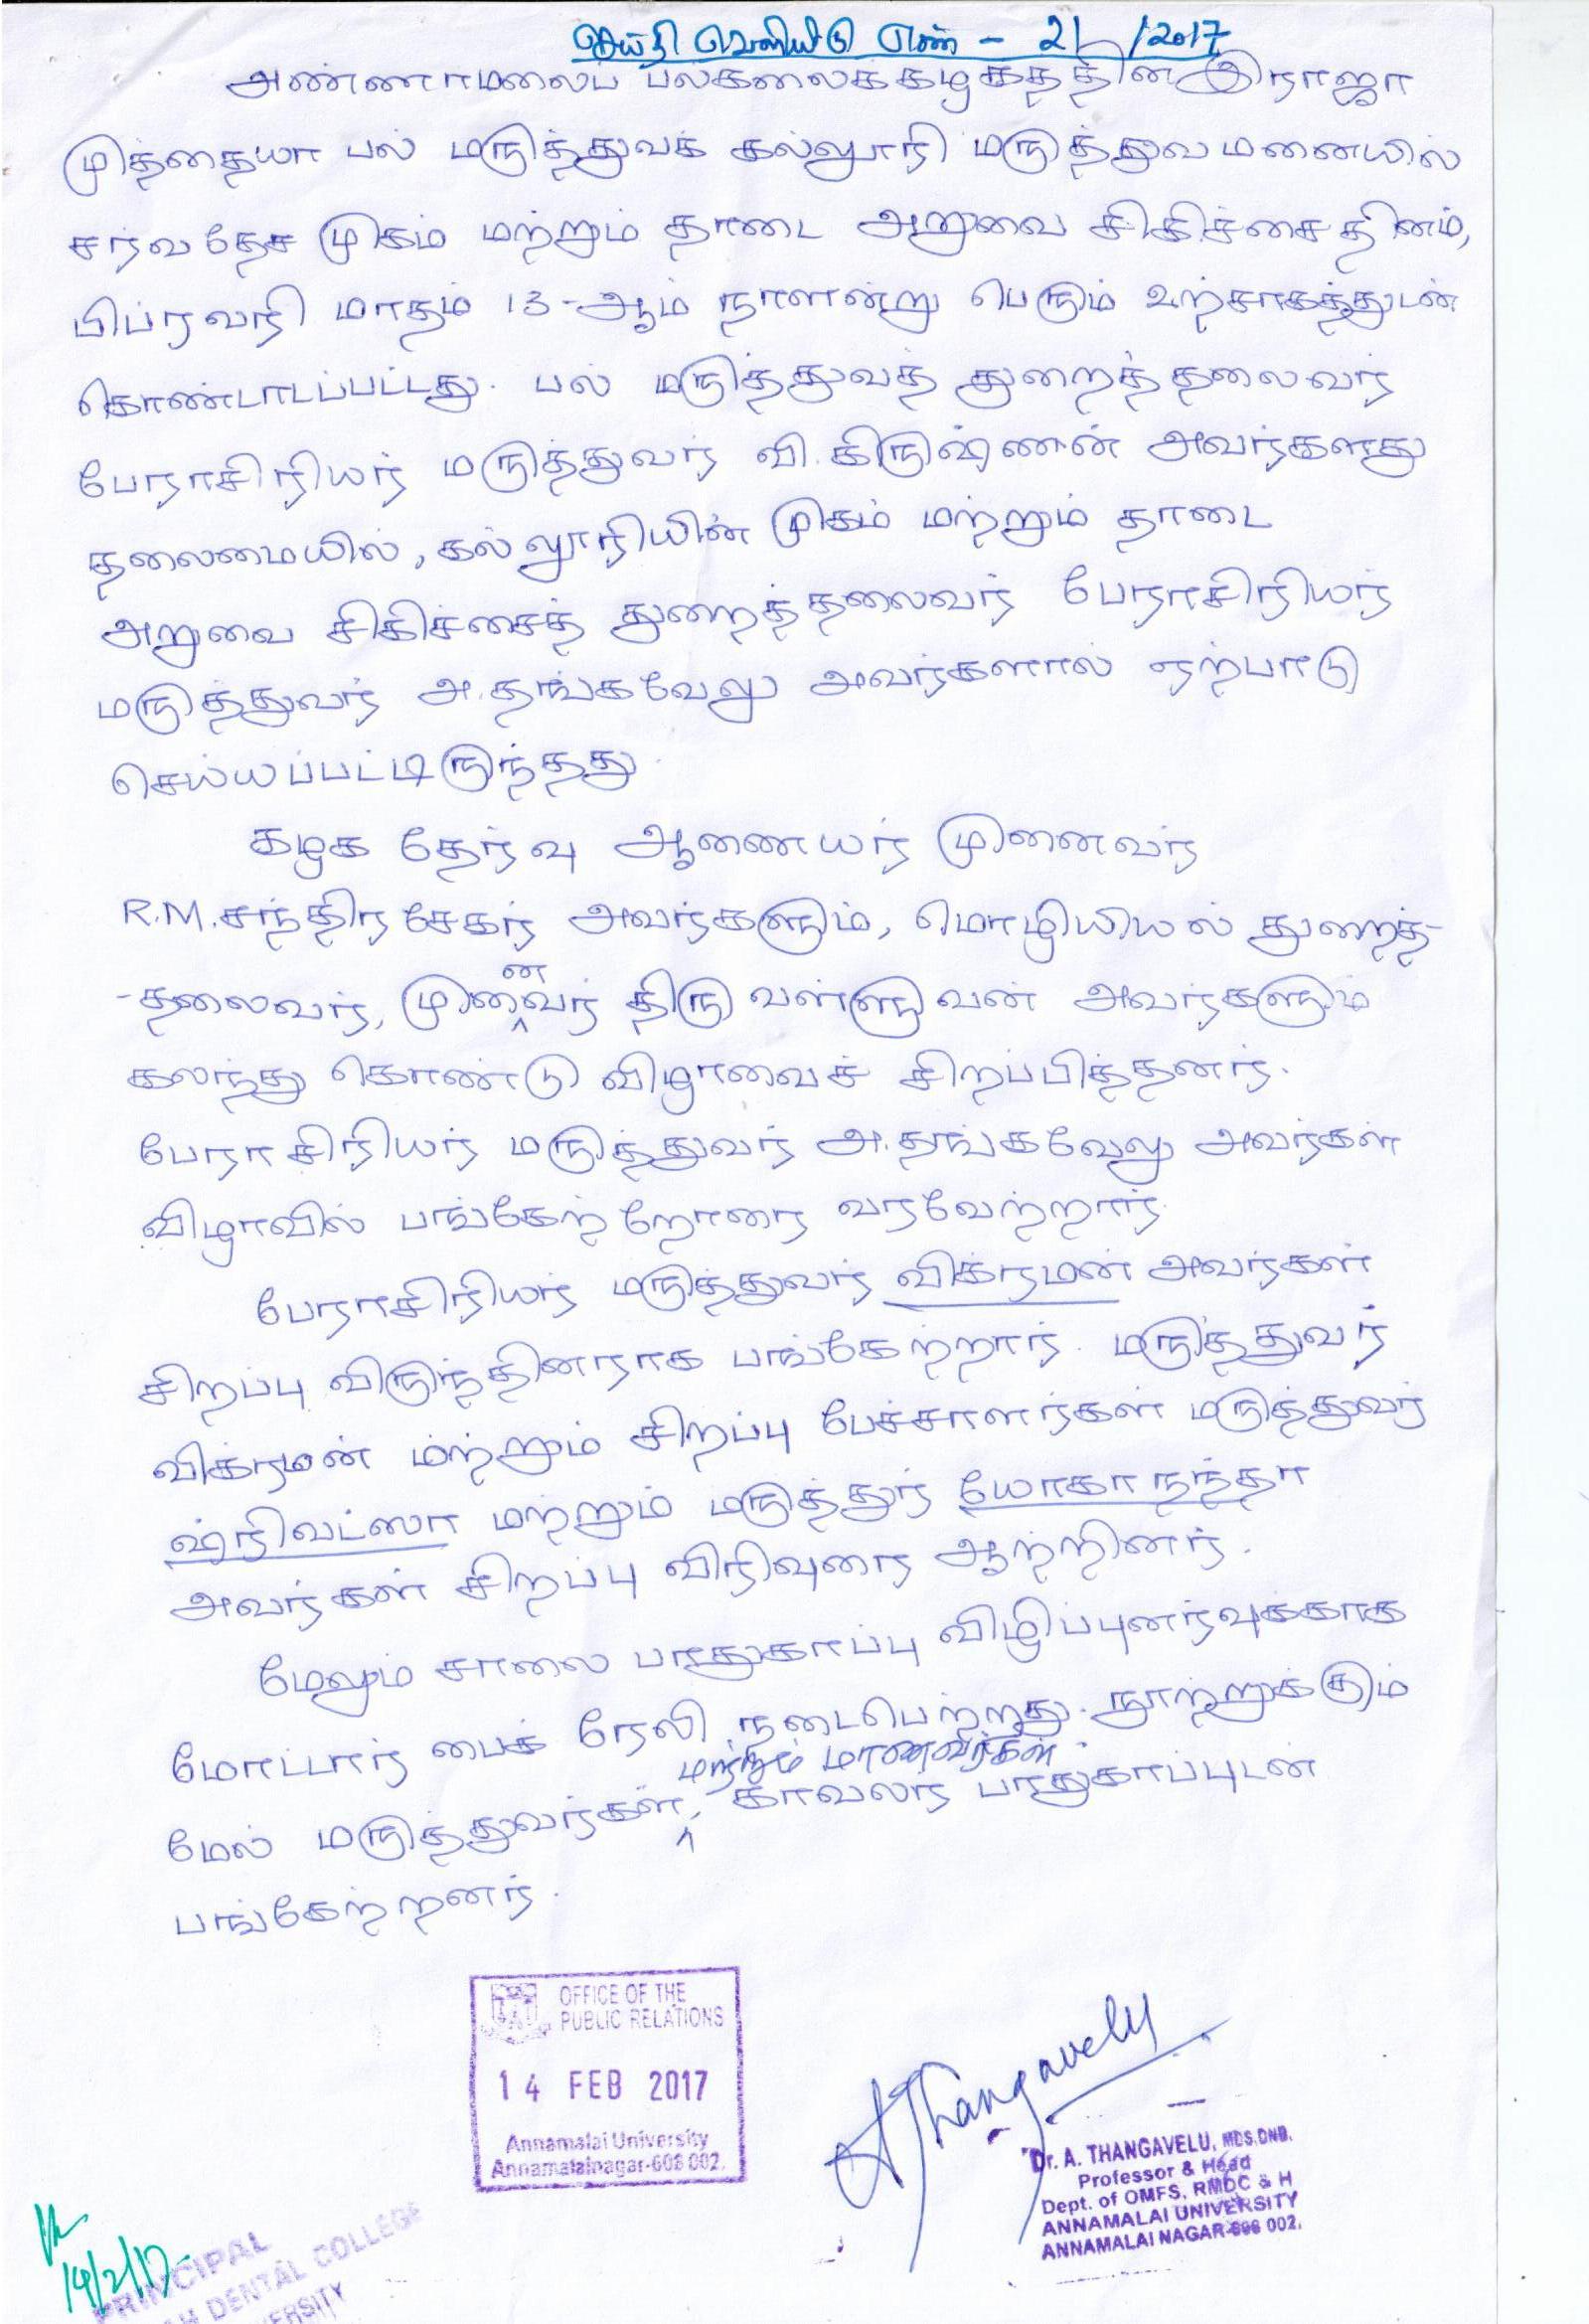 செய்தி வெளியீடு எண் - 21 /2017
அண்ணாமலைப் பல்கலைக்கழகத்தின் இராஜா
முத்தையா பல் மருத்துவக் கல்லூரி மருத்துவமனையில்
சர்வதேச முகம் மற்றும் தாடை அறுவை சிகிச்சை தினம்,
பிப்ரவரி மாதம் 13-ஆம் நாளன்று பெரும் உற்சாகத்துடன்
கொண்டாடப்பட்டது. பல் மருத்துவத் துறைத்தலைவர்
பேராசிரியர் மருத்துவர் வி.கிருஷ்ணன் அவர்களது
தலைமையில், கல்லூரியின் முகம் மற்றும் தாடை
அறுவை சிகிச்சைத் துறைத்தலைவர் பேராசிரியர்
மருத்துவர் அ.தங்கவேலு அவர்களால் ஏற்பாடு
செய்யப்பட்டிருந்தது.
கழக தேர்வு ஆணையர் முனைவர்
R.M.சந்திரசேகர் அவர்களும், மொழியியல் துறைத்-
-தலைவர், முனைவர் திருவள்ளுவன் அவர்களும்
கலந்து கொண்டு விழாவைச் சிறப்பித்தனர்.
பேராசிரியர் மருத்துவர் அ.தங்கவேலு அவர்கள்
விழாவில் பங்கேற்றோரை வரவேற்றார்.
பேராசிரியர் மருத்துவர் விக்ரமன் அவர்கள்
சிறப்பு விருந்தினராக பங்கேற்றார். மருத்துவர்
விக்ரமன் மற்றும் சிறப்பு பேச்சாளர்கள் மருத்துவர்
ஷ்ரிவட்ஸா மற்றும் மருத்துர் யோகாநந்தா
அவர்கள் சிறப்பு விரிவுரை ஆற்றினர்.
மேலும் சாலை பாதுகாப்பு விழிப்புனர்வுக்காக
மோட்டார் பைக் ரேலி நடைபெற்றது. நூற்றுக்கும்
மற்றும் மாணவர்கள்
மேல் மருத்துவர்கள், காவலர் பாதுகாப்புடன்
பங்கேற்றனர்.
OFFICE OF THE
PUBLIC RELATIONS
14 FEB 2017
Annamalai University
Annamalainagar-608 002.
A Thangavelu
Dr. A. THANGAVELU, MDS.DNB.
Professor & Head
Dept. of OMFS, RMDC & H
ANNAMALAI UNIVERSITY
ANNAMALAI NAGAR-608 002.
14/2/17
PRINCIPAL
DENTAL COLLEGE